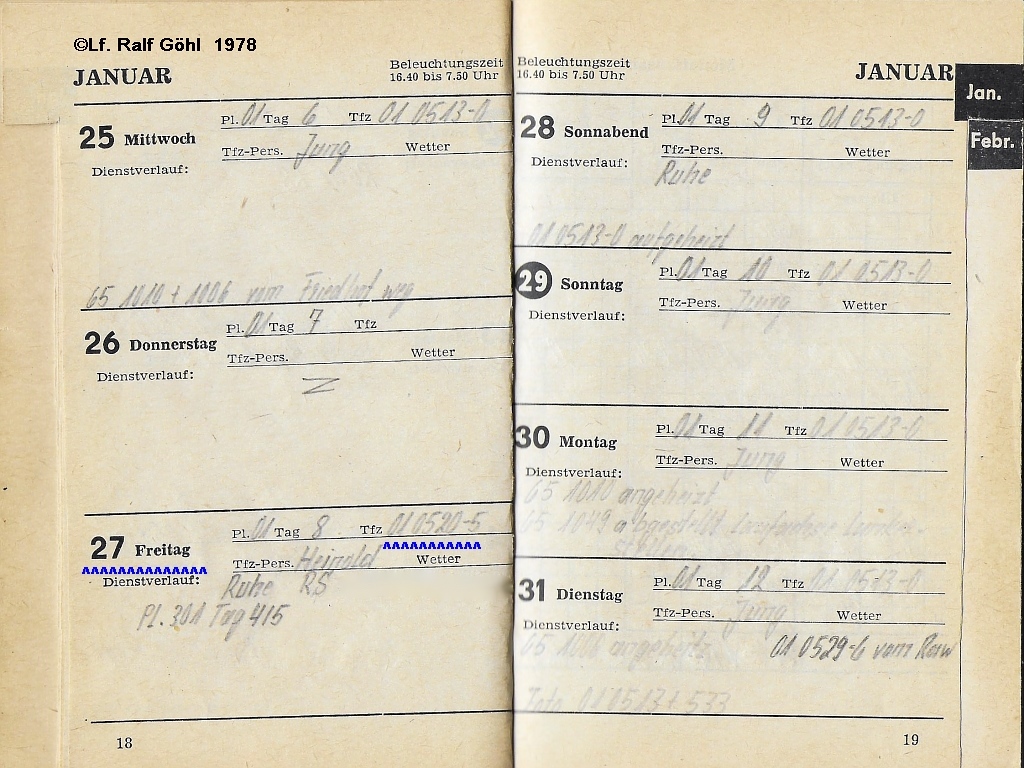 ©Lf. Ralf Göhl 1978
JANUAR
Beleuchtungszeit
16.40 bis 7.50 Uhr
25 Mittwoch
Pl. 01 Tag 6 Tfz 01 0513-0
Tfz-Pers. Jung Wetter
Dienstverlauf:
65 1010 + 1006 vom Friedhof weg
26 Donnerstag
Pl. 01 Tag 7 Tfz
Tfz-Pers. Wetter
Dienstverlauf:
Z
27 Freitag
Pl. 01 Tag 8 Tfz 01 0520-5
Tfz-Pers. Heinold Wetter
Dienstverlauf:
Ruhe RS
Pl. 301 Tag 415
18
Beleuchtungszeit
16.40 bis 7.50 Uhr
JANUAR
Jan.
Febr.
28 Sonnabend
Pl. 01 Tag 9 Tfz 01 0513-0
Tfz-Pers. Wetter
Dienstverlauf:
Ruhe
01 0513-0 aufgeheizt
29 Sonntag
Pl. 01 Tag 10 Tfz 01 0513-0
Tfz-Pers. Jung Wetter
Dienstverlauf:
30 Montag
Pl. 01 Tag 11 Tfz 01 0513-0
Tfz-Pers. Jung Wetter
Dienstverlauf:
65 1010 angeheizt
65 1049 abgestellt
31 Dienstag
Pl. 01 Tag 12 Tfz 01 0513-0
Tfz-Pers. Jung Wetter
Dienstverlauf:
65 1006 angeheizt
01 0529-6 vom Raw
01 0513 + 533
19